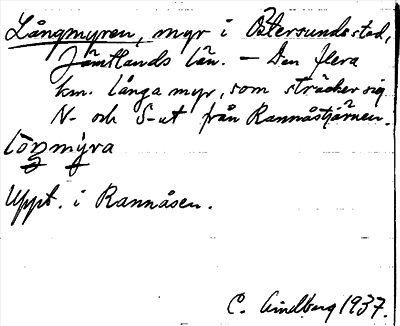 Långmyren, myr i Östersunds stad,
Jämtlands län. – Den flera
km. långa myr, som sträcker sig
N- och S-ut från Rannåstjärnen.
Uppt. i Rannåsen.
C. Lindberg 1937.